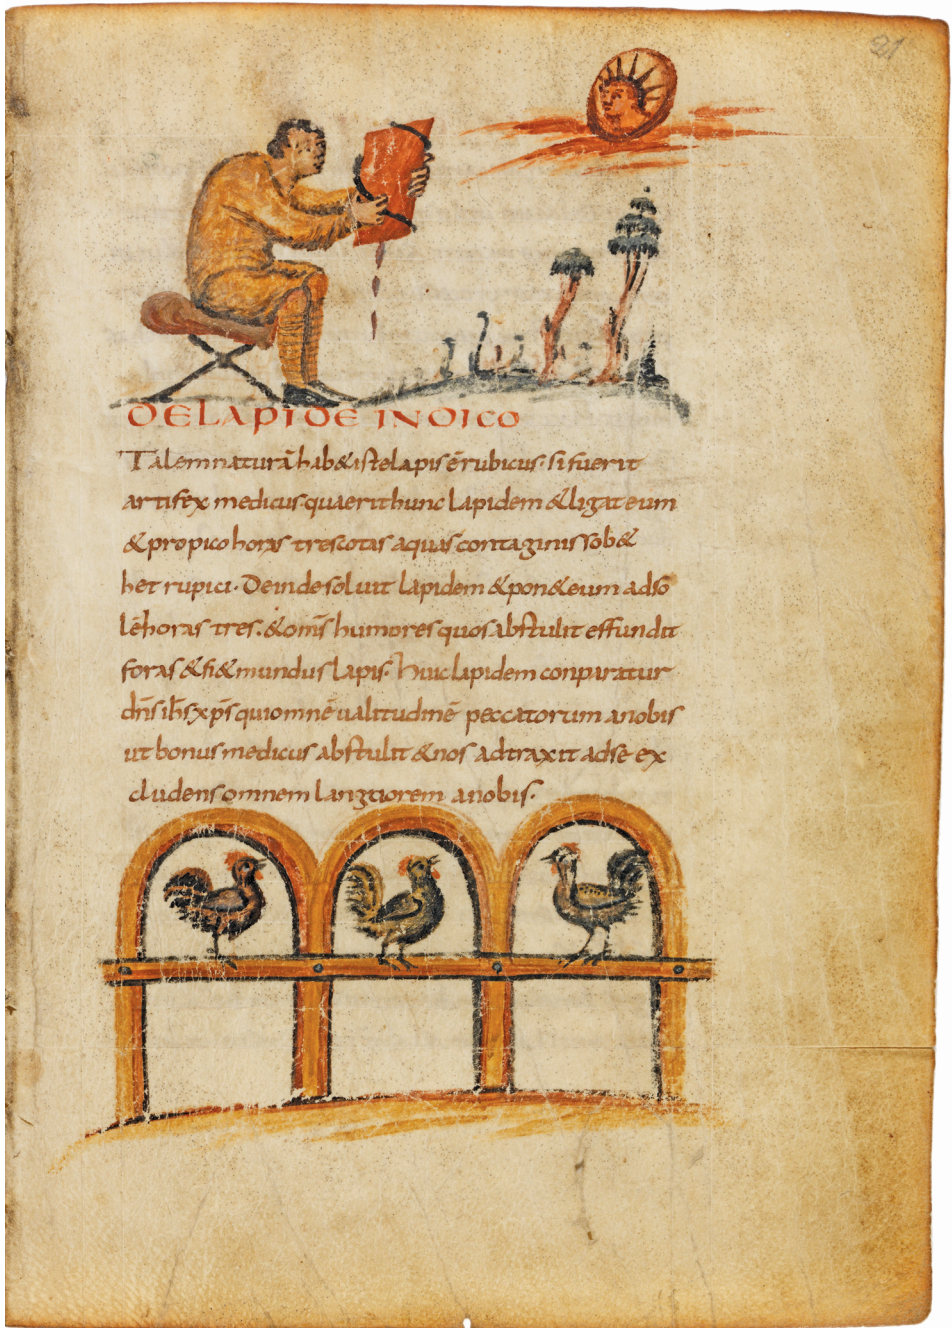 21
DE LAPIDE INDICO
Talem naturā hab& iste lapis ē rubicus· si fuerit
artifex medicus quaerit hunc lapidem & ligat eum
& propico horas tres totas aquas contaginis sob&
het rupici· Deinde soluit lapidem & pon& eum ad so
lē horas tres· & om̄s humores quos abstulit effundit
foras & fi& mundus lapis· huic lapidem conparatur
dn̄s ih̄s xp̄s qui omnē ualitudinē peccatorum anobis
ut bonus medicus abstulit & nos adtraxit ad se ex
cludens omnem languorem anobis·